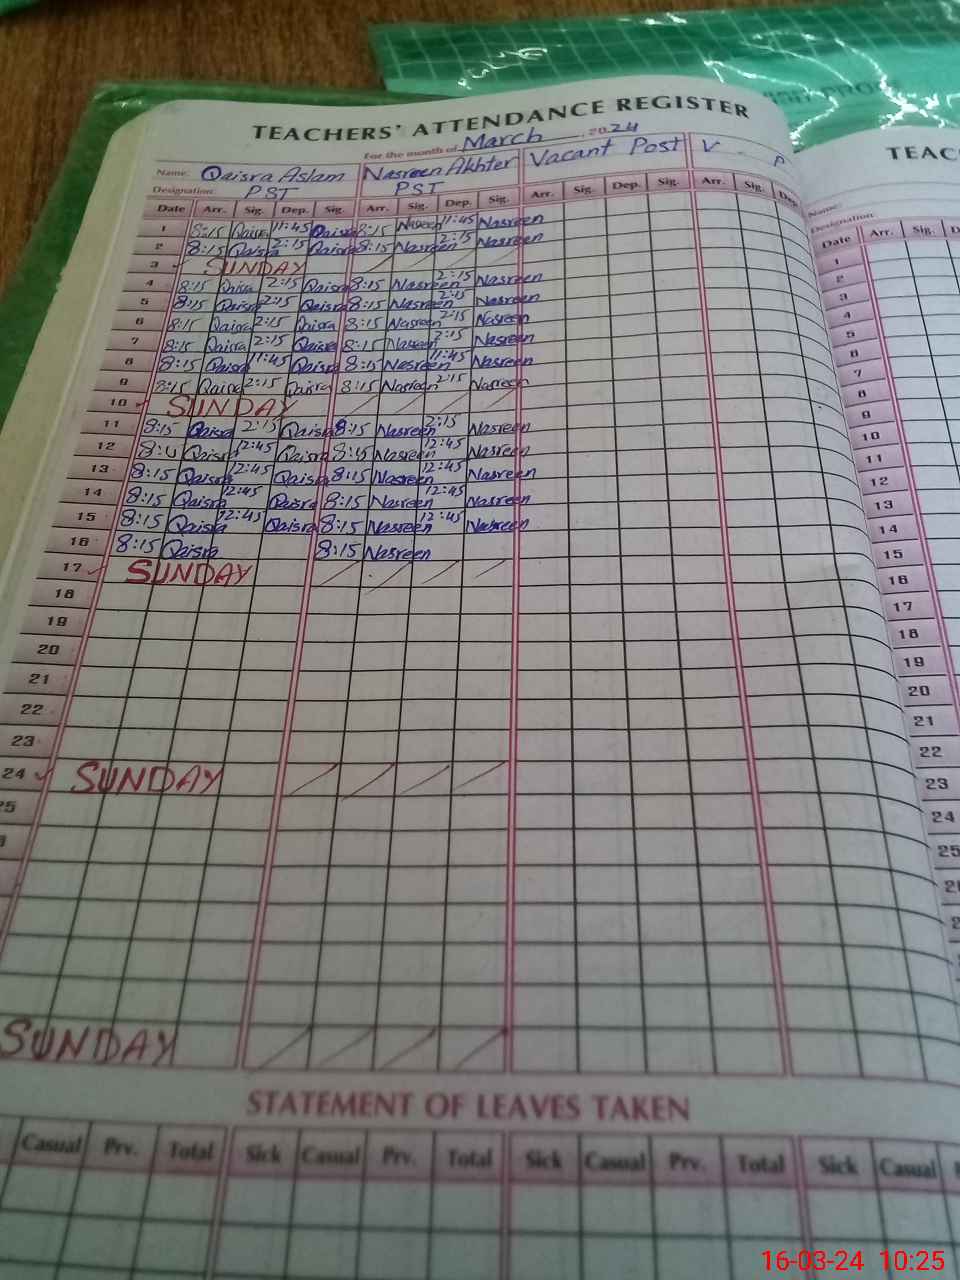 TEACHERS' ATTENDANCE REGISTER
For the month of March 2024
Name: Qaisra Aslam Nasreen Akhter Vacant Post V P
Designation: PST PST
Date Arr. Sig. Dep. Sig. Arr. Sig. Dep. Sig. Arr. Sig. Dep. Sig. Arr. Sig. Dep
1 8:15 Qaisra 11:45 Qaisra 8:15 Nasreen 11:45 Nasreen
2 8:15 Qaisra 2:15 Qaisra 8:15 Nasreen 2:15 Nasreen
3 SUNDAY
4 8:15 Qaisra 2:15 Qaisra 8:15 Nasreen 2:15 Nasreen
5 8:15 Qaisra 2:15 Qaisra 8:15 Nasreen 2:15 Nasreen
6 8:15 Qaisra 2:15 Qaisra 8:15 Nasreen 2:15 Nasreen
7 8:15 Qaisra 2:15 Qaisra 8:15 Nasreen 2:15 Nasreen
8 8:15 Qaisra 11:45 Qaisra 8:15 Nasreen 11:45 Nasreen
9 8:15 Qaisra 2:15 Qaisra 8:15 Nasreen 2:15 Nasreen
10 SUNDAY
11 8:15 Qaisra 2:15 Qaisra 8:15 Nasreen 2:15 Nasreen
12 Qaisra 12:45 Qaisra Nasreen 12:45 Nasreen
13 8:15 Qaisra 12:45 Qaisra 8:15 Nasreen 12:45 Nasreen
14 8:15 Qaisra 12:45 Qaisra 8:15 Nasreen 12:45 Nasreen
15 8:15 Qaisra 12:45 Qaisra 8:15 Nasreen 12:45 Nasreen
16 8:15 Qaisra 8:15 Nasreen
17 SUNDAY
18
19
20
21
22
23
24 SUNDAY
25
SUNDAY
STATEMENT OF LEAVES TAKEN
Casual Prv. Total Sick Casual Prv. Total Sick Casual Prv. Total Sick Casual
TEAC
Name:
Designation
Date Arr. Sig. D
1
2
3
4
5
6
7
8
9
10
11
12
13
14
15
16
17
18
19
20
21
22
23
24
25
16-03-24 10:25